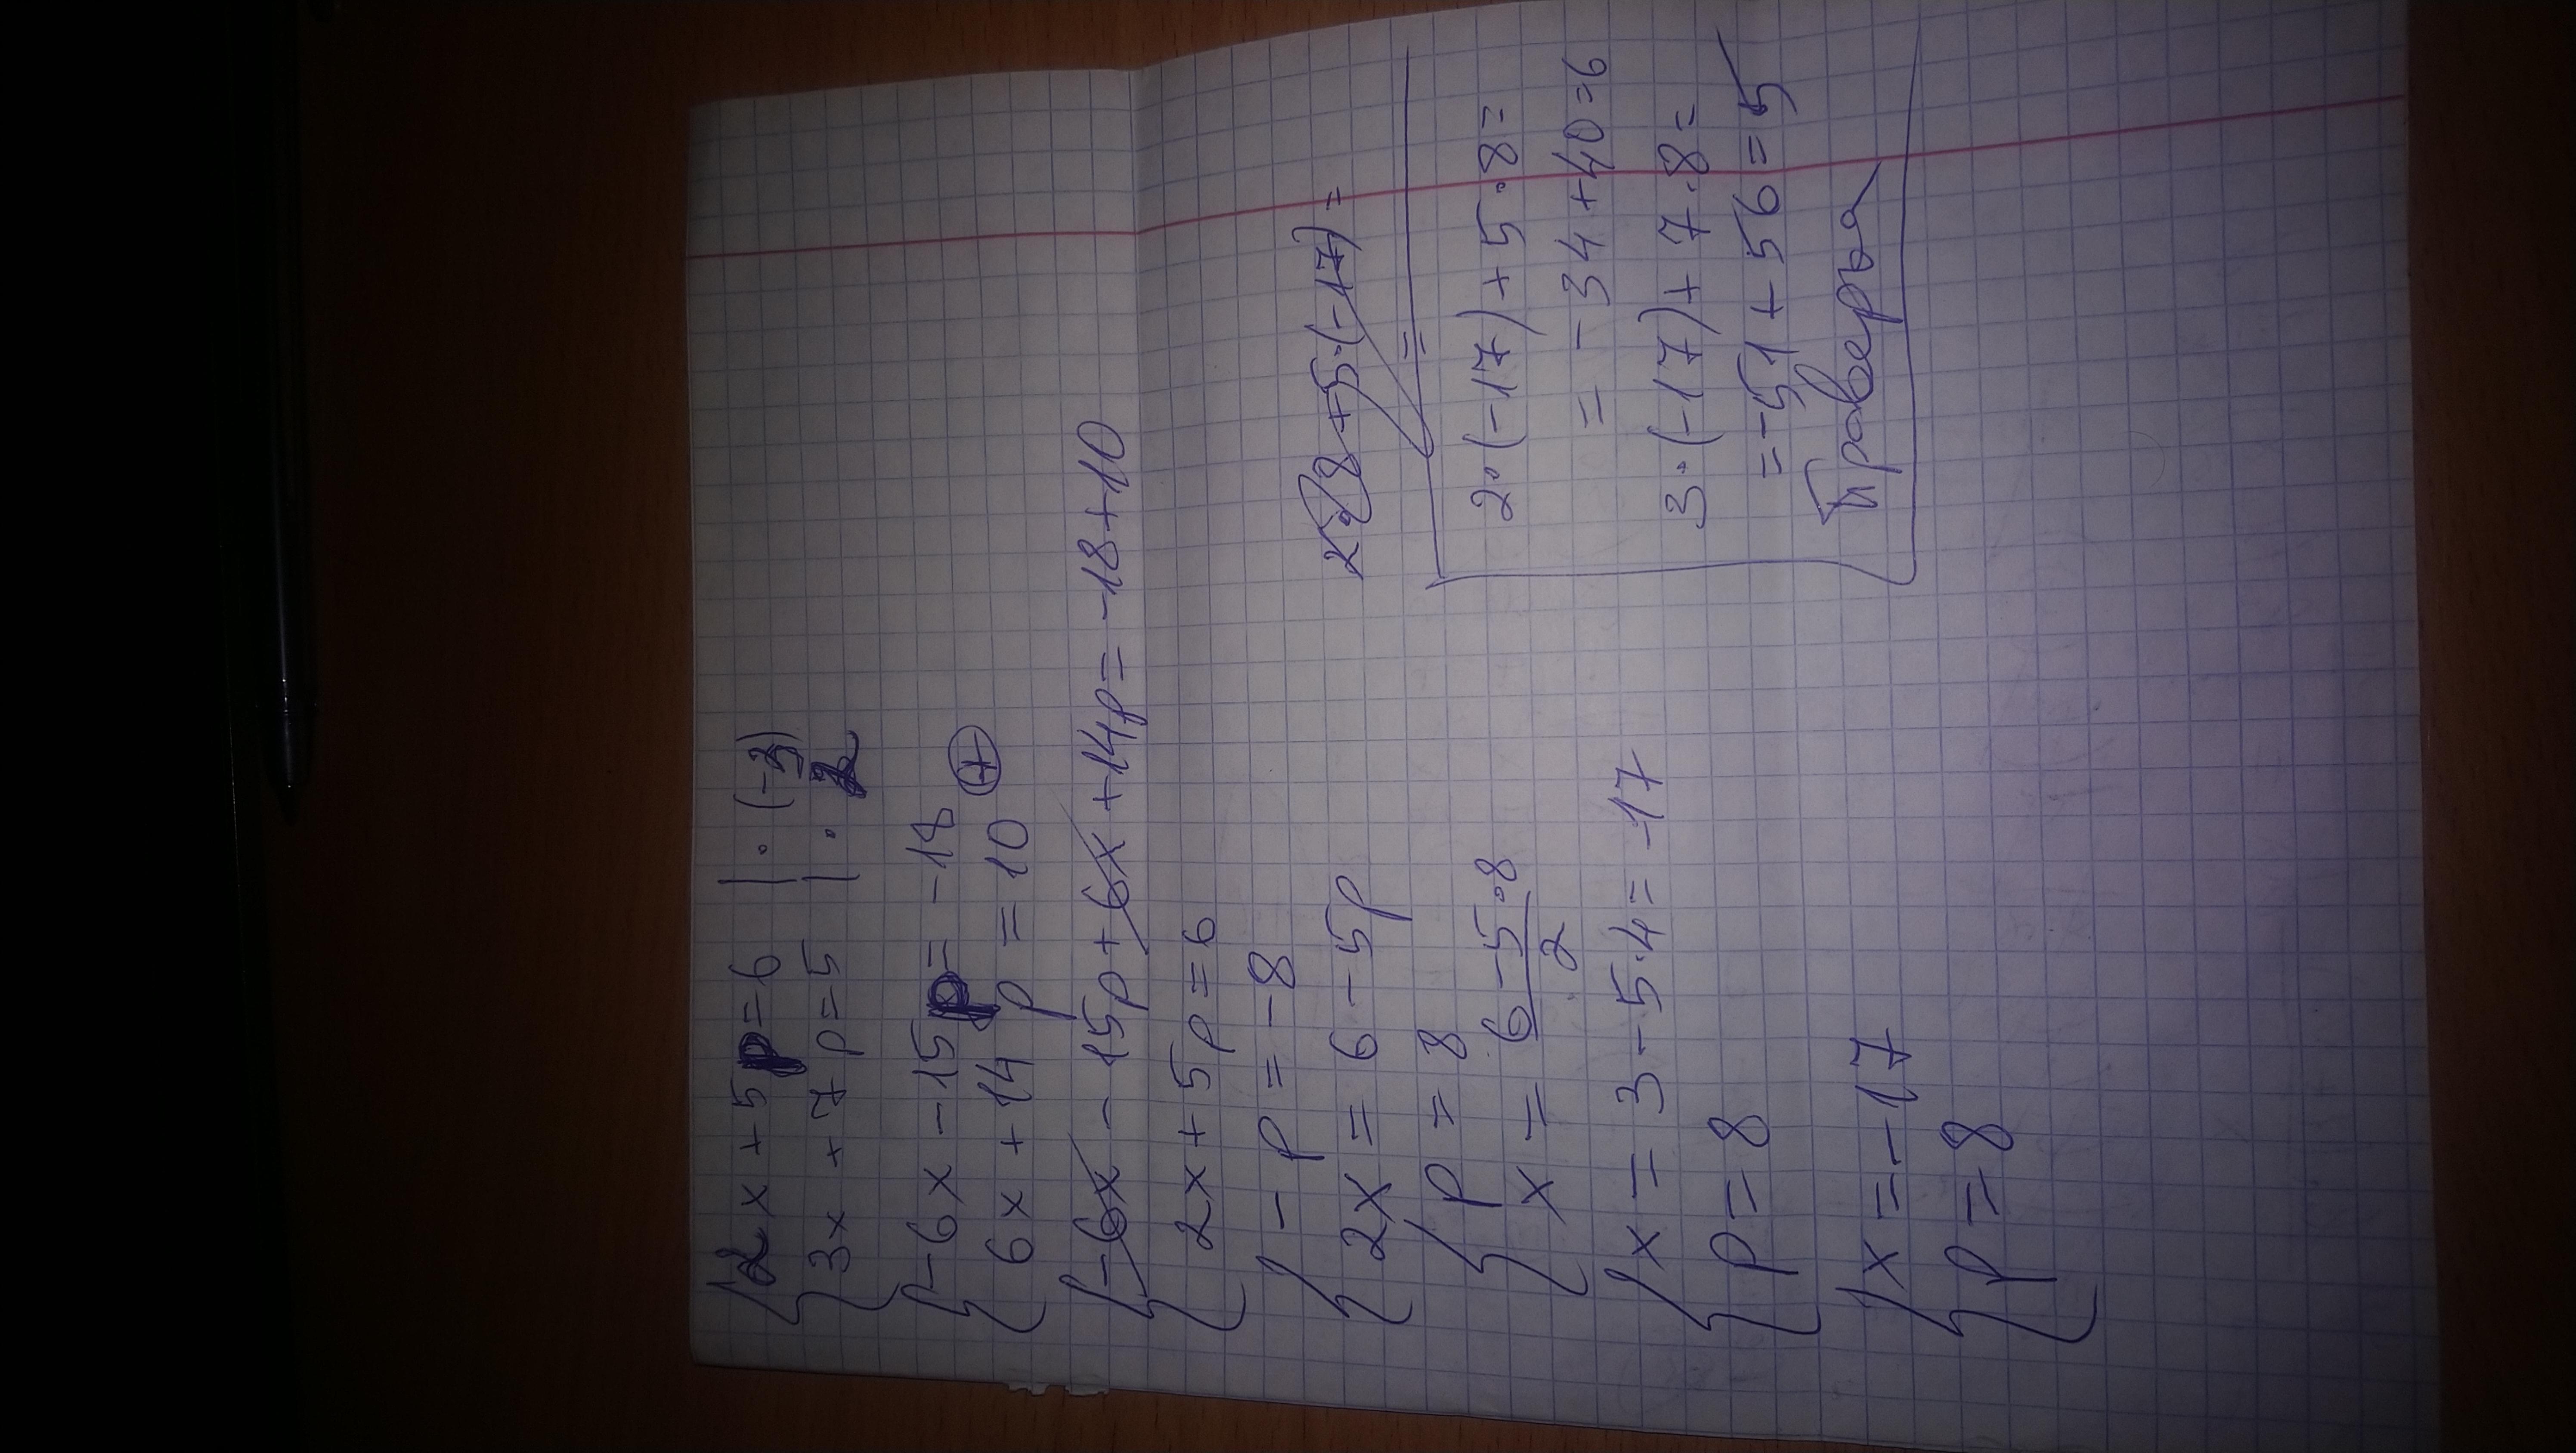 { 2x + 5p = 6 | · (-3)
3x + 7p = 5 | · 2
{ -6x - 15p = -18
6x + 14p = 10 (+)
{ -6x - 15p + 6x + 14p = -18 + 10
2x + 5p = 6
{ -p = -8
2x = 6 - 5p
{ p = 8
x = (6 - 5·8)/2
{ x = 3 - 5·4 = -17
p = 8
{ x = -17
p = 8
+5·(-17) =
=
2·(-17) + 5·8 =
= -34 + 40 = 6
3·(-17) + 7·8 =
= -51 + 56 = 5
Проверка